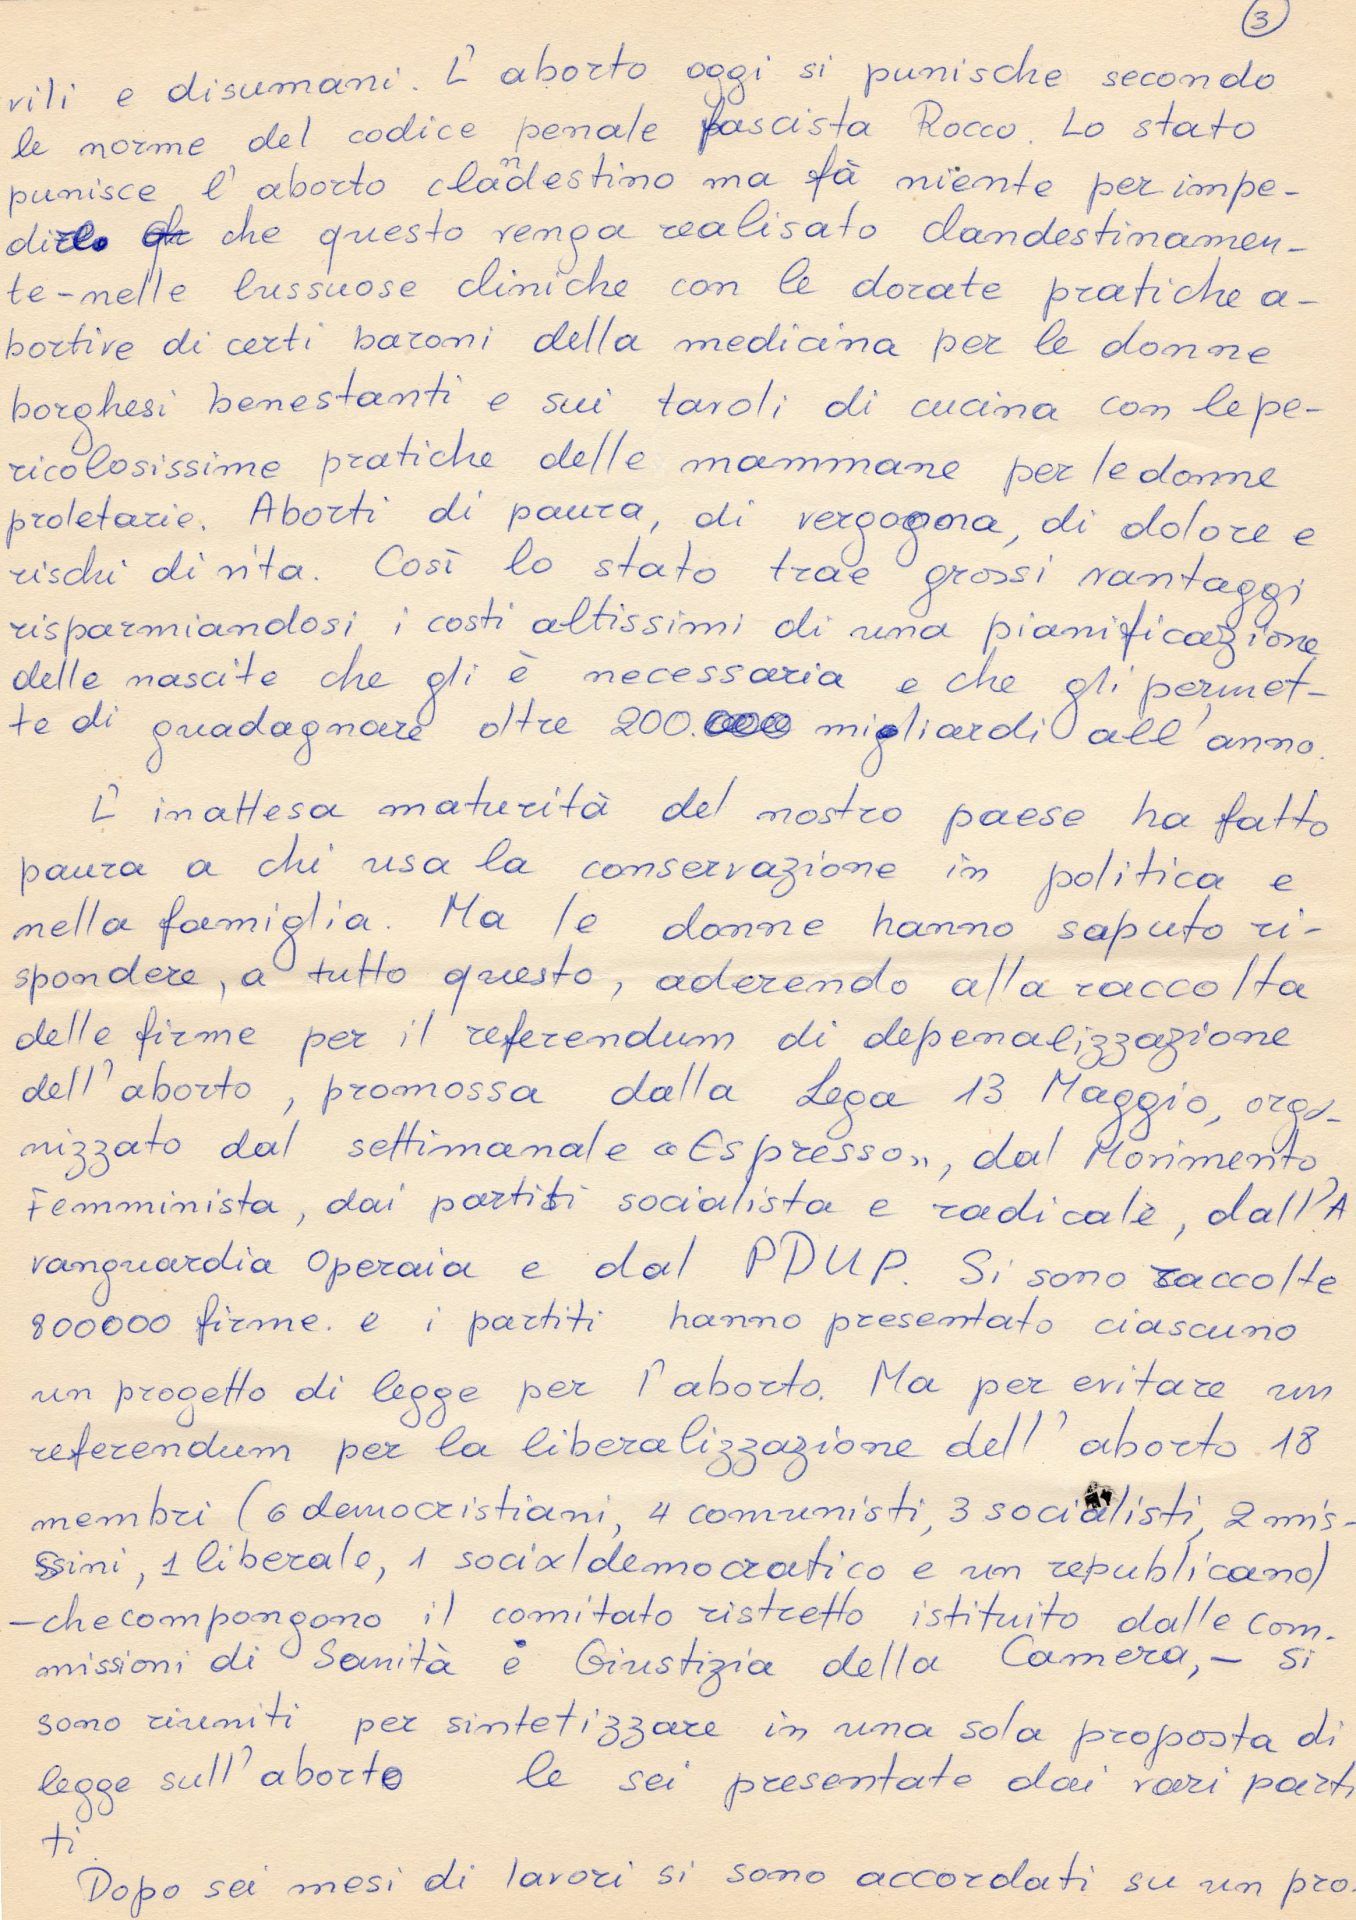 3
vili e disumani. L'aborto oggi si punische secondo
le norme del codice penale fascista Rocco. Lo stato
punisce l'aborto clandestino ma fà niente per impe-
dire che questo venga realisato clandestinamen-
te-nelle lussuose cliniche con le dorate pratiche a-
bortive di certi baroni della medicina per le donne
borghesi benestanti e sui tavoli di cucina con le pe-
ricolosissime pratiche delle mammane per le donne
proletarie. Aborti di paura, di vergogna, di dolore e
rischi di vita. Così lo stato trae grossi vantaggi
risparmiandosi i costi altissimi di una pianificazione
delle nascite che gli è necessaria e che gli permet-
te di guadagnare oltre 200. migliardi all'anno.
L'inattesa maturità del nostro paese ha fatto
paura a chi usa la conservazione in politica e
nella famiglia. Ma le donne hanno saputo ri-
spondere, a tutto questo, aderendo alla raccolta
delle firme per il referendum di depenalizzazione
dell'aborto, promossa dalla Lega 13 Maggio, orga-
nizzato dal settimanale «Espresso», dal Movimento
Femminista, dai partiti socialista e radicale, dall'A
vanguardia Operaia e dal PDUP. Si sono raccolte
800000 firme. e i partiti hanno presentato ciascuno
un progetto di legge per l'aborto. Ma per evitare un
referendum per la liberalizzazione dell'aborto 18
membri (6 democristiani, 4 comunisti, 3 socialisti, 2 mis-
sini, 1 liberale, 1 socialdemocratico e un republicano)
-che compongono il comitato ristretto istituito dalle com-
missioni di Sanità e Giustizia della Camera,- si
sono riuniti per sintetizzare in una sola proposta di
legge sull'aborto le sei presentate dai vari parti
ti.
Dopo sei mesi di lavori si sono accordati su un pro-